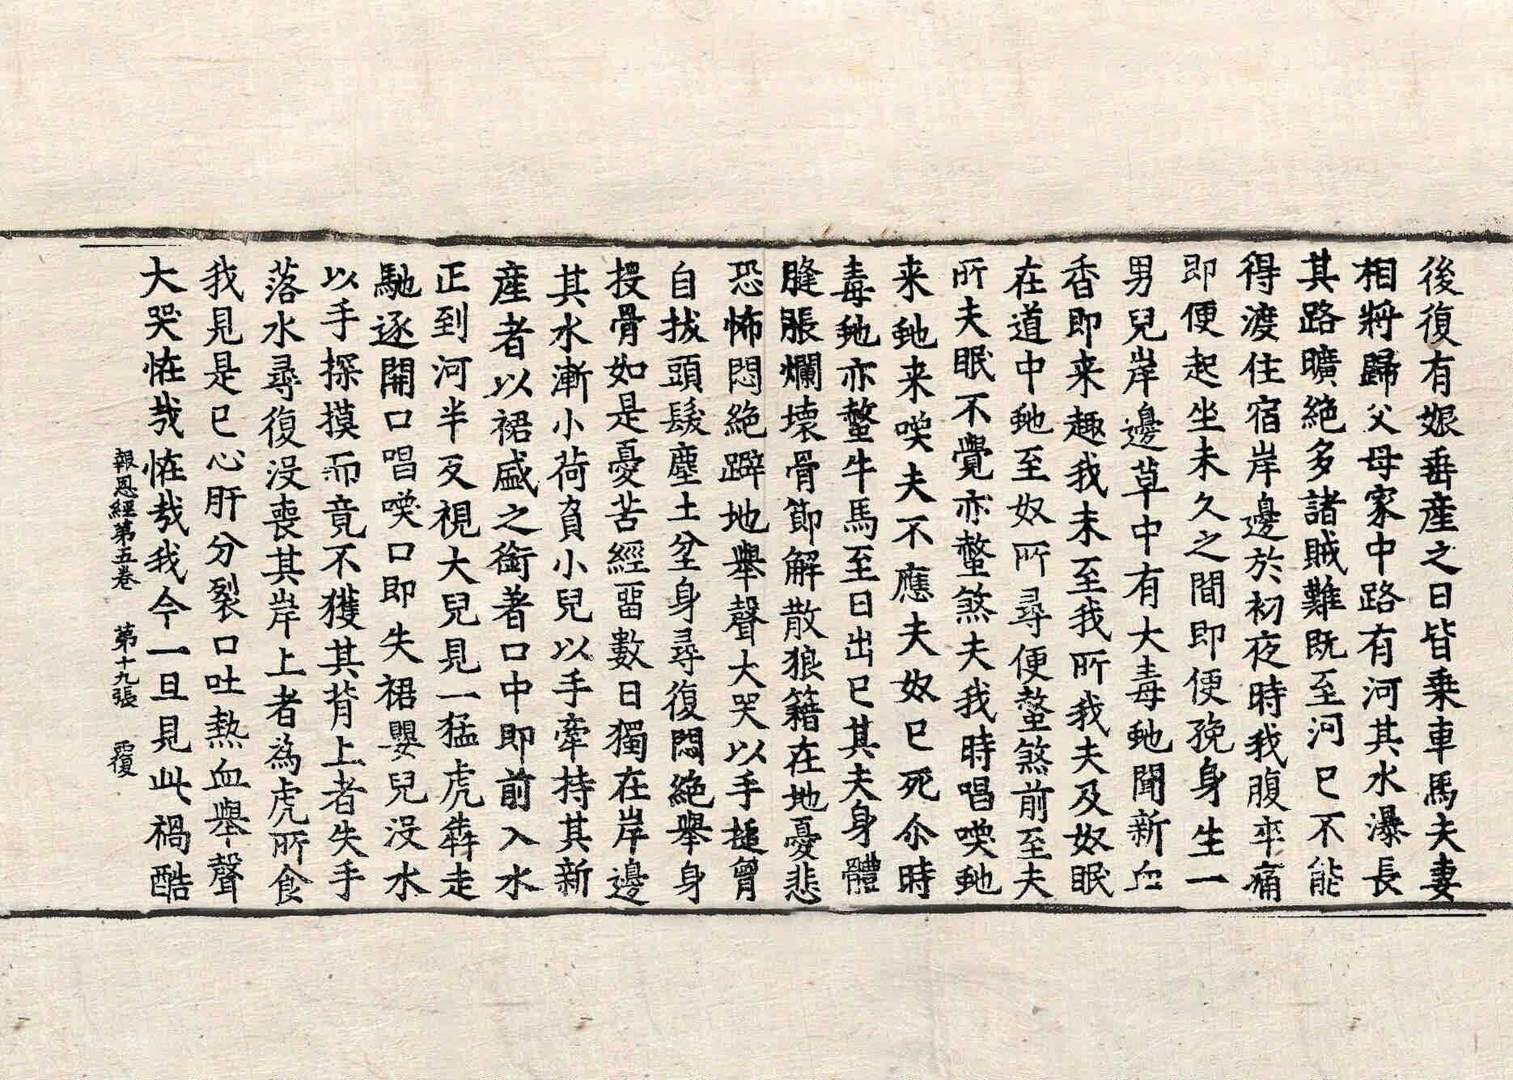 後復有娠垂産之日皆乗車馬夫妻
相將歸父母家中路有河其水瀑長
其路曠絶多諸賊難既至河已不能
得渡住宿岸邊於初夜時我腹卒痛
即便起坐未久之間即便娩身生一
男兒岸邊草中有大毒虵聞新血
香即来趣我未至我所我夫及奴眠
在道中虵至奴所尋便螫煞前至夫
所夫眠不覺亦螫煞夫我時唱喚虵
来虵来喚夫不應夫奴已死尒時
毒虵亦螫牛馬至日出已其夫身體
膖脹爛壞骨節解散狼籍在地憂悲
恐怖悶絶躃地舉聲大哭以手搥胷
自拔頭髮塵土坌身尋復悶絶舉身
投骨如是憂苦經畱數日獨在岸邊
其水漸小荷負小兒以手牽持其新
産者以裙盛之銜著口中即前入水
正到河半反視大兒見一猛虎犇走
馳逐開口唱喚口即失裙嬰兒没水
以手探摸而竟不獲其背上者失手
落水尋復没喪其岸上者為虎所食
我見是已心肝分裂口吐熱血舉聲
大哭恠㢤恠㢤我今一旦見此禍酷
報恩經第五卷 第十九張 覆